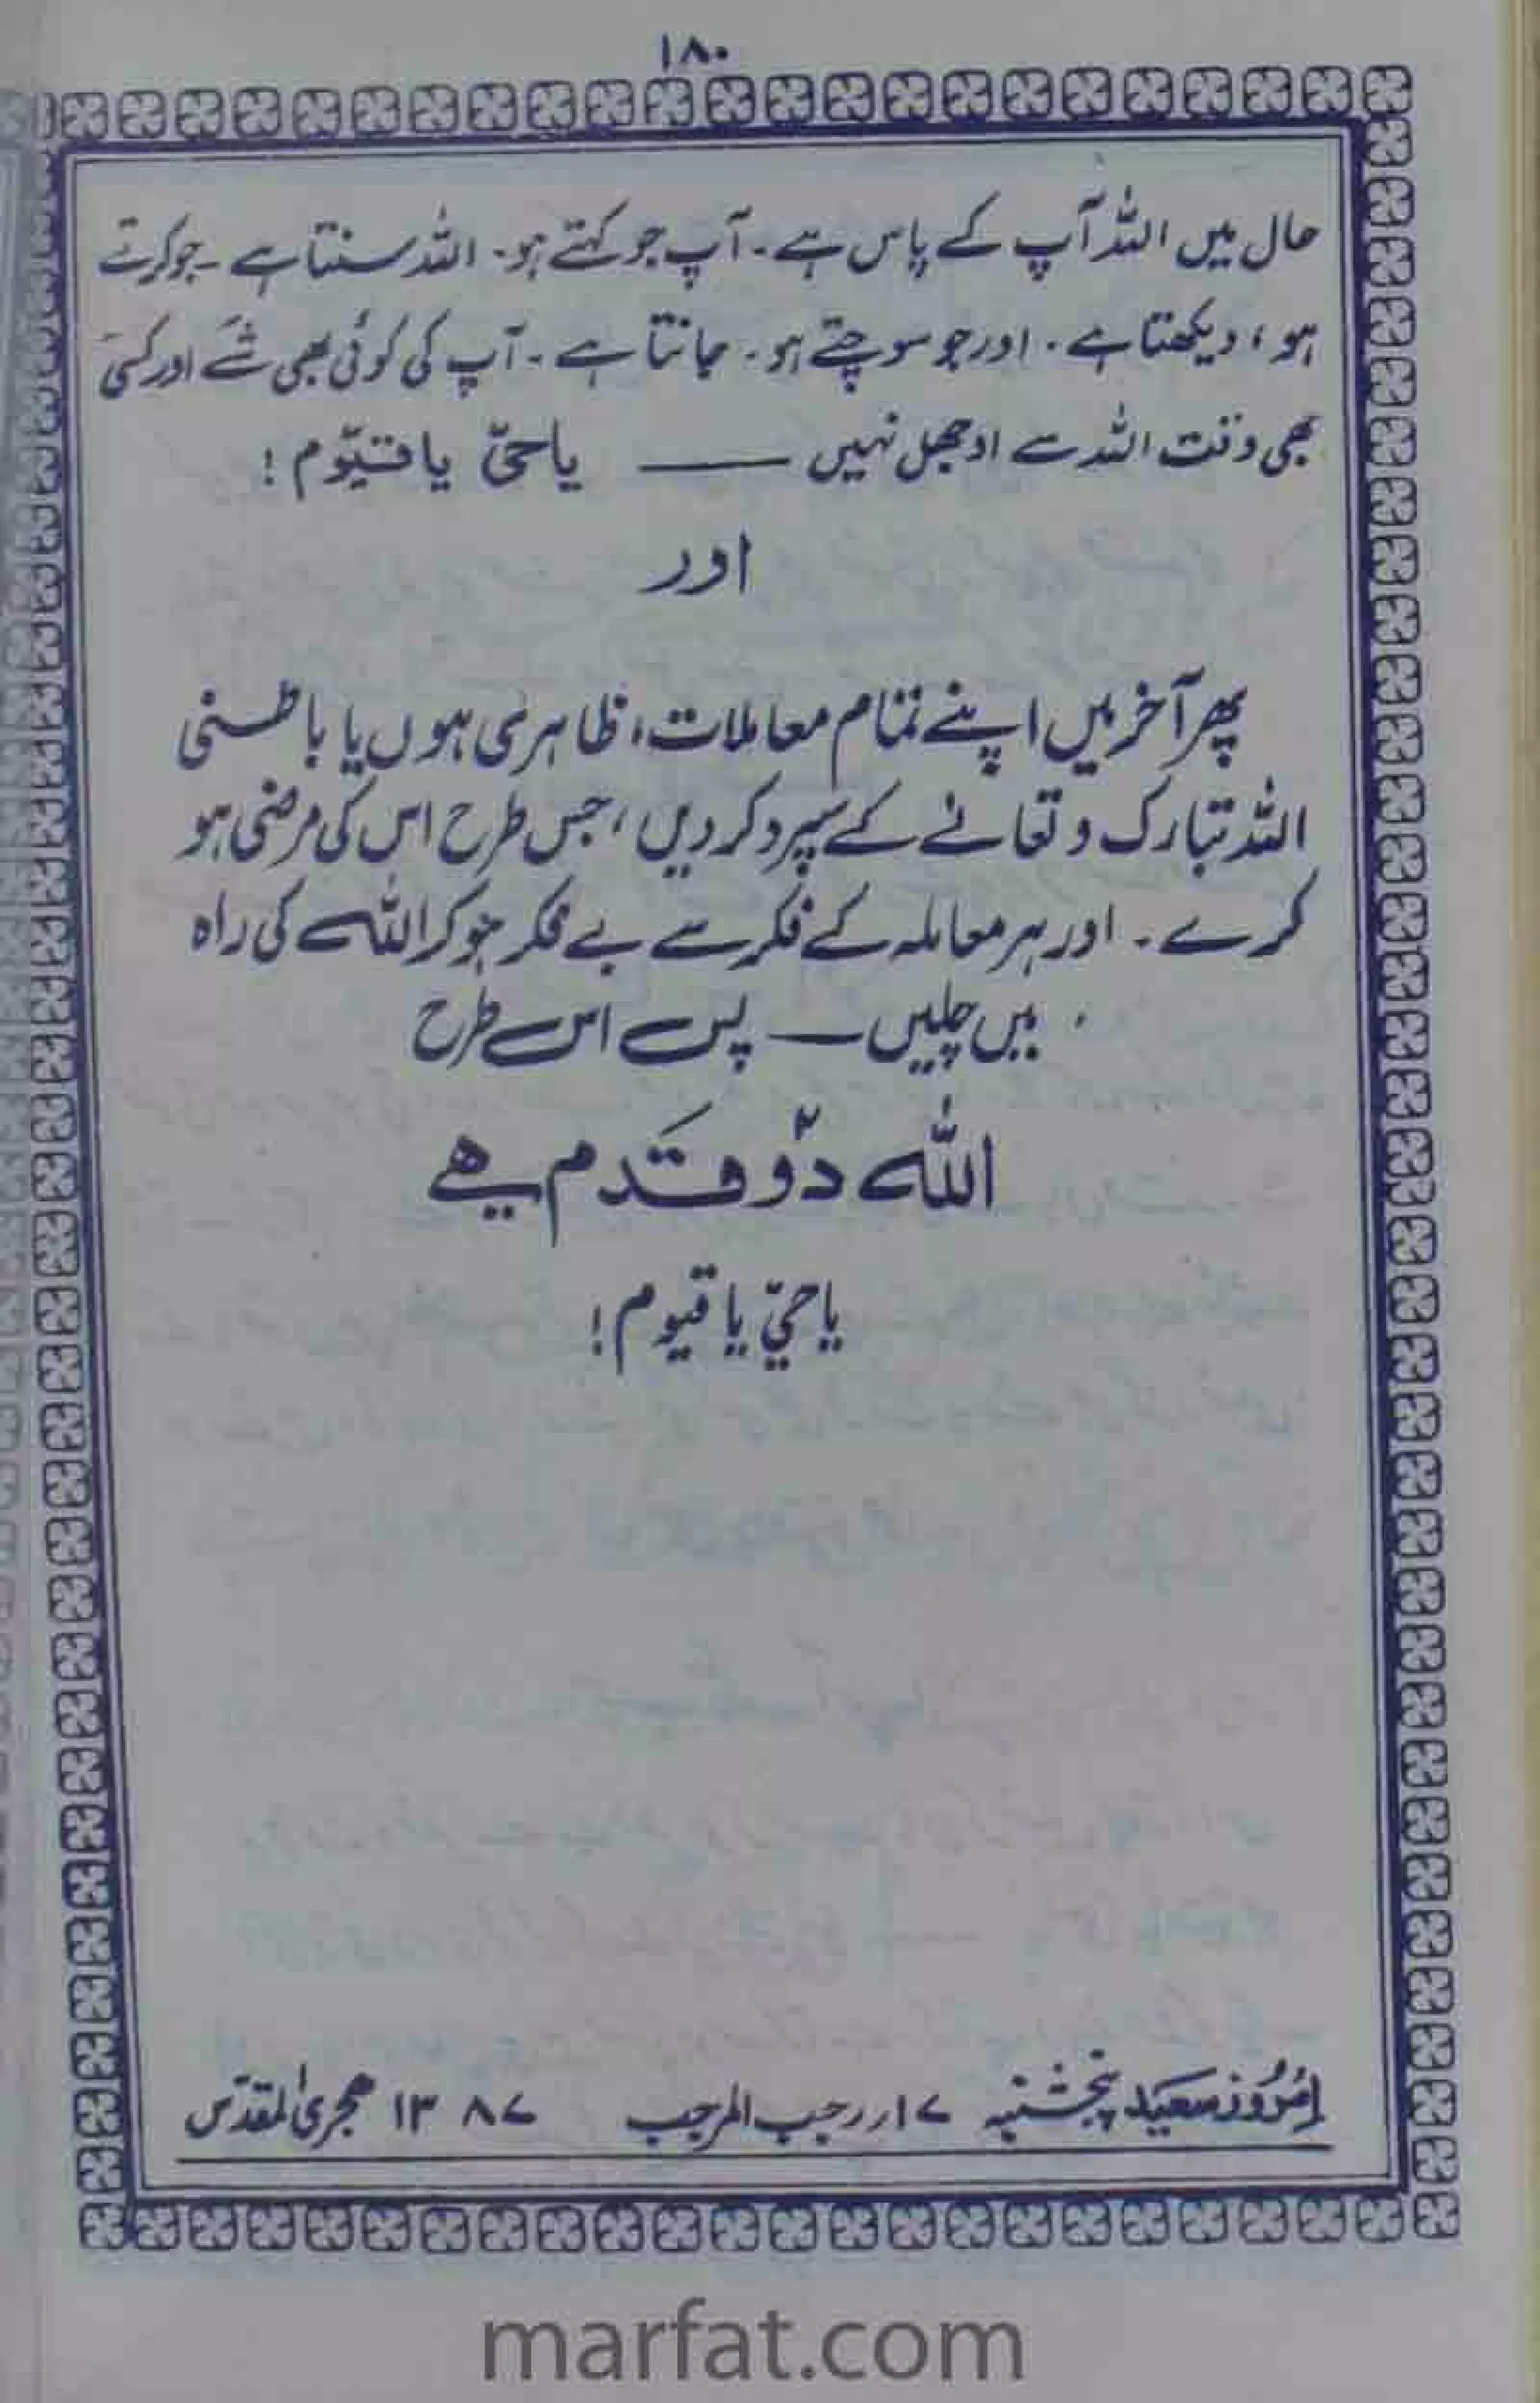 ۱۸۰
حال میں اللہ آپ کے پاس ہے ۔ آپ جو کہتے ہو ۔ اللہ سنتا ہے ۔ جو کرتے
ہو ، دیکھتا ہے ۔ اور جو سوچتے ہو ۔ جانتا ہے ۔ آپ کی کوئی بھی شے اور کسی
بھی وقت اللہ سے اوجھل نہیں ــــــ یا حیّ یا قیّوم !
اور
پھر آخر میں اپنے تمام معاملات ، ظاہری ہوں یا باطنی
اللہ تبارک و تعالےٰ کے سپرد کر دیں ، جس طرح اس کی مرضی ہو
کرے ۔ اور ہر معاملہ کے فکر سے بے فکر ہو کر اللہ کی راہ
میں چلیں ــــــ پس اس طرح
اللہ دو۲ قَدم ہے
یا حیّ یا قیوم !
اِمروز سعید پنجشنبہ ۱۷ رجب المرجب ۱۳۸۷ ھجری المقدّس
marfat.com